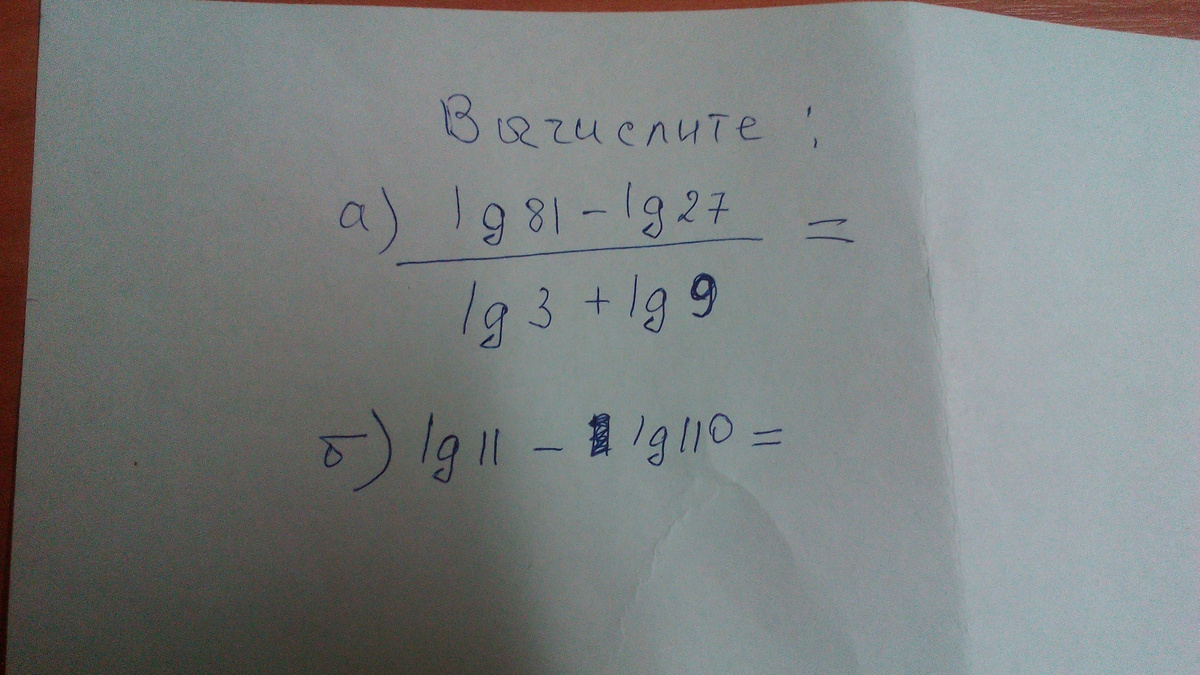 Вычислите:
а) lg 81 - lg 27 =
lg 3 + lg 9
б) lg 11 - lg 110 =